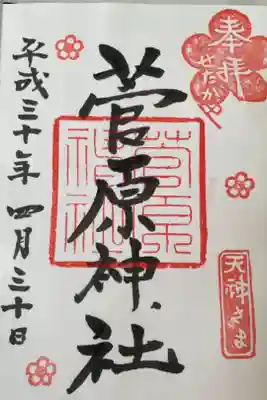 奉拝
せたがや
菅原神社
菅原神社
天神さま
平成三十年 四月三十日